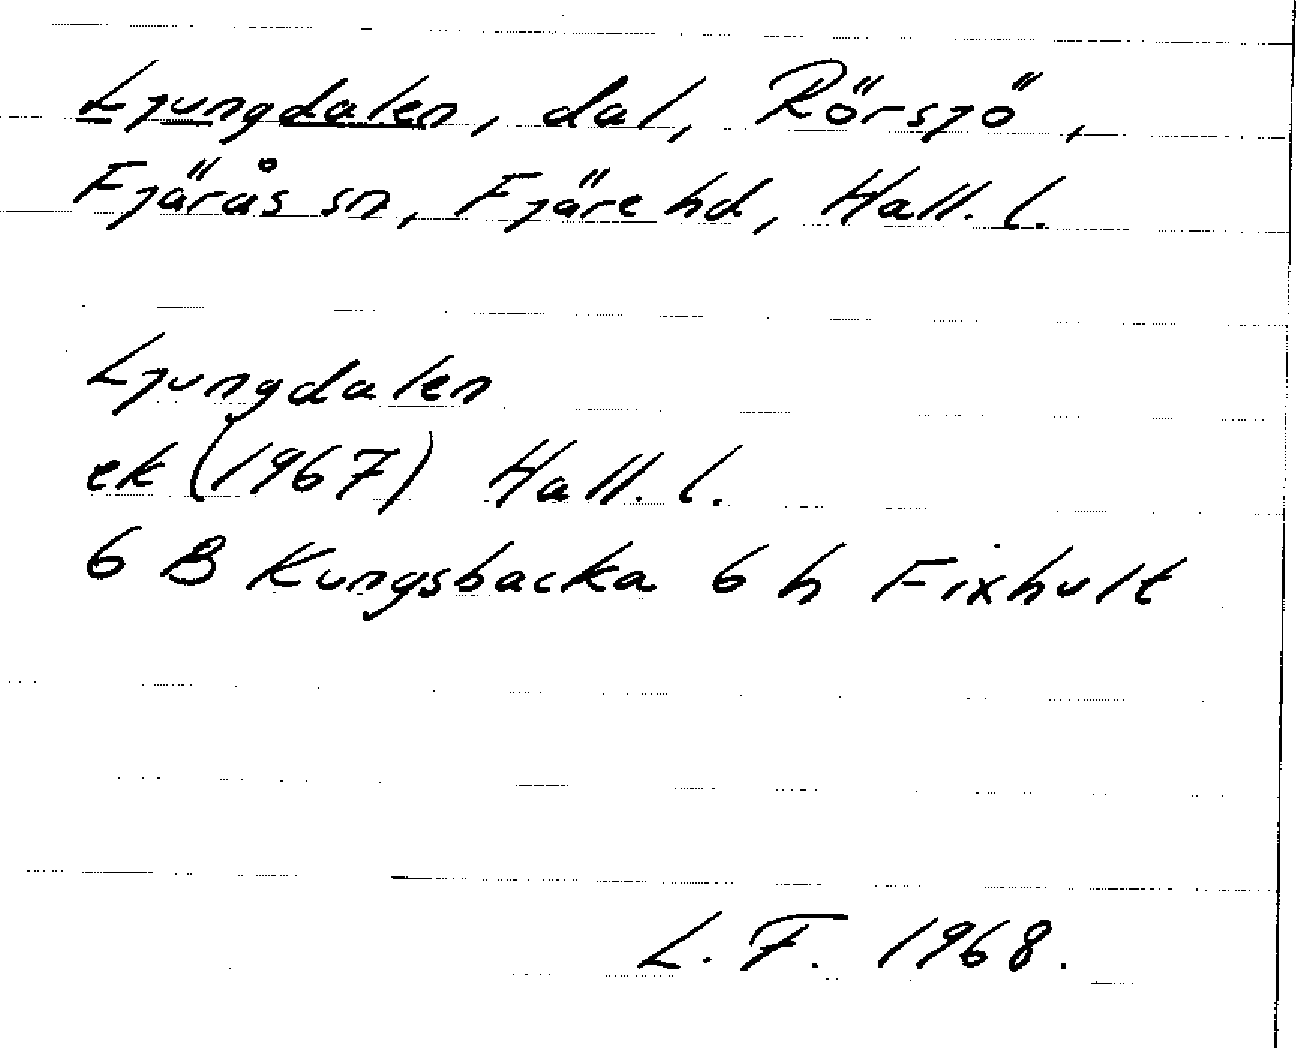 Ljungdalen, dal, Rörsjö,
Fjärås sn, Fjäre hd, Hall. l.
Ljungdalen
ek (1967) Hall. l.
6 B Kungsbacka 6 h Fixhult
L. F. 1968.